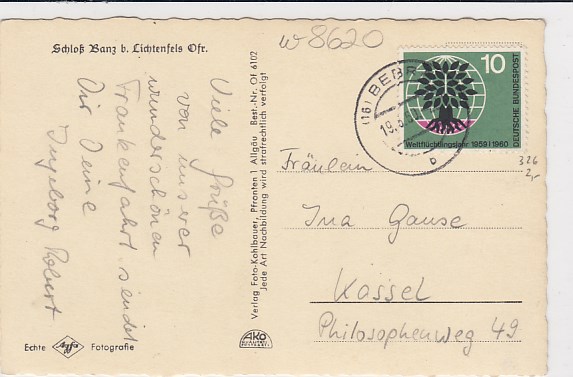 Schloß Banz b. Lichtenfels Ofr.
w 8620
Viele Grüße
von unserer
wunderschönen
Frankenfahrt sendet
Dir Deine
Ingeborg Robert
Verlag Foto-Kahlbauer, Pfronten 1 Allgäu Best.-Nr. Of 6102
Jede Art Nachbildung wird strafrechtlich verfolgt
10
DEUTSCHE BUNDESPOST
Weltflüchtlingsjahr 1959 | 1960
(16) BEBR
19. 5.
b
326
2,-
Fräulein
Ina Gause
Kassel
Philosophenweg 49
Echte Agfa Fotografie
Ako